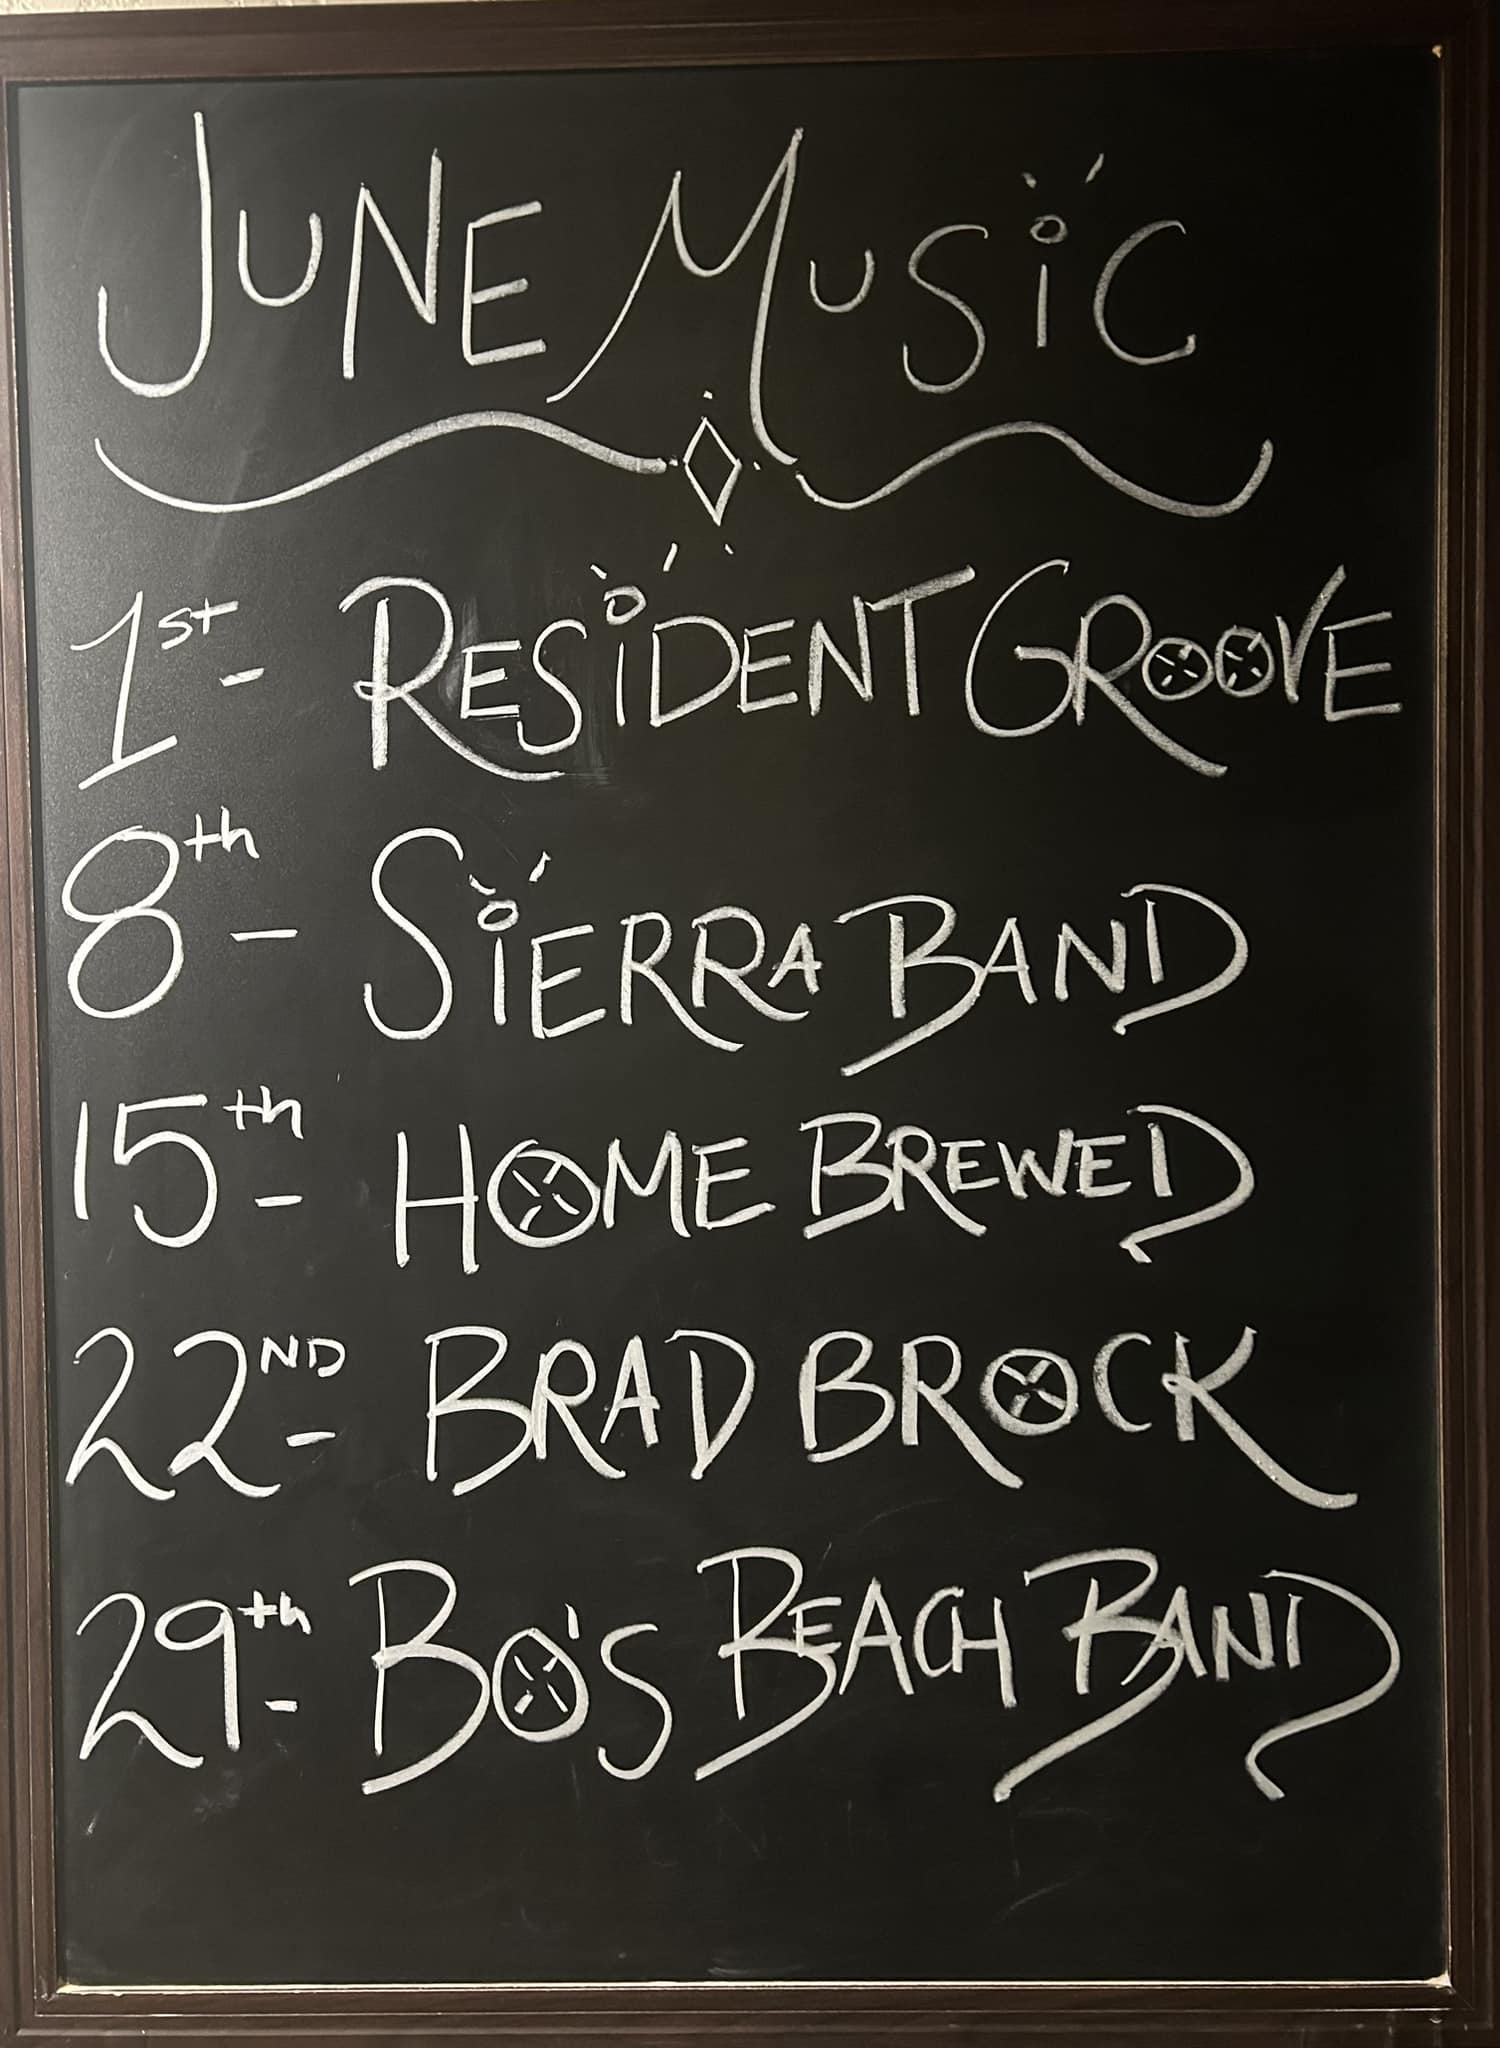 JUNE MUSiC
1st - RESiDENT GROOVE
8th - SiERRA BAND
15th - HOME BREWED
22ND - BRAD BROCK
29th - BO'S BEACH BAND